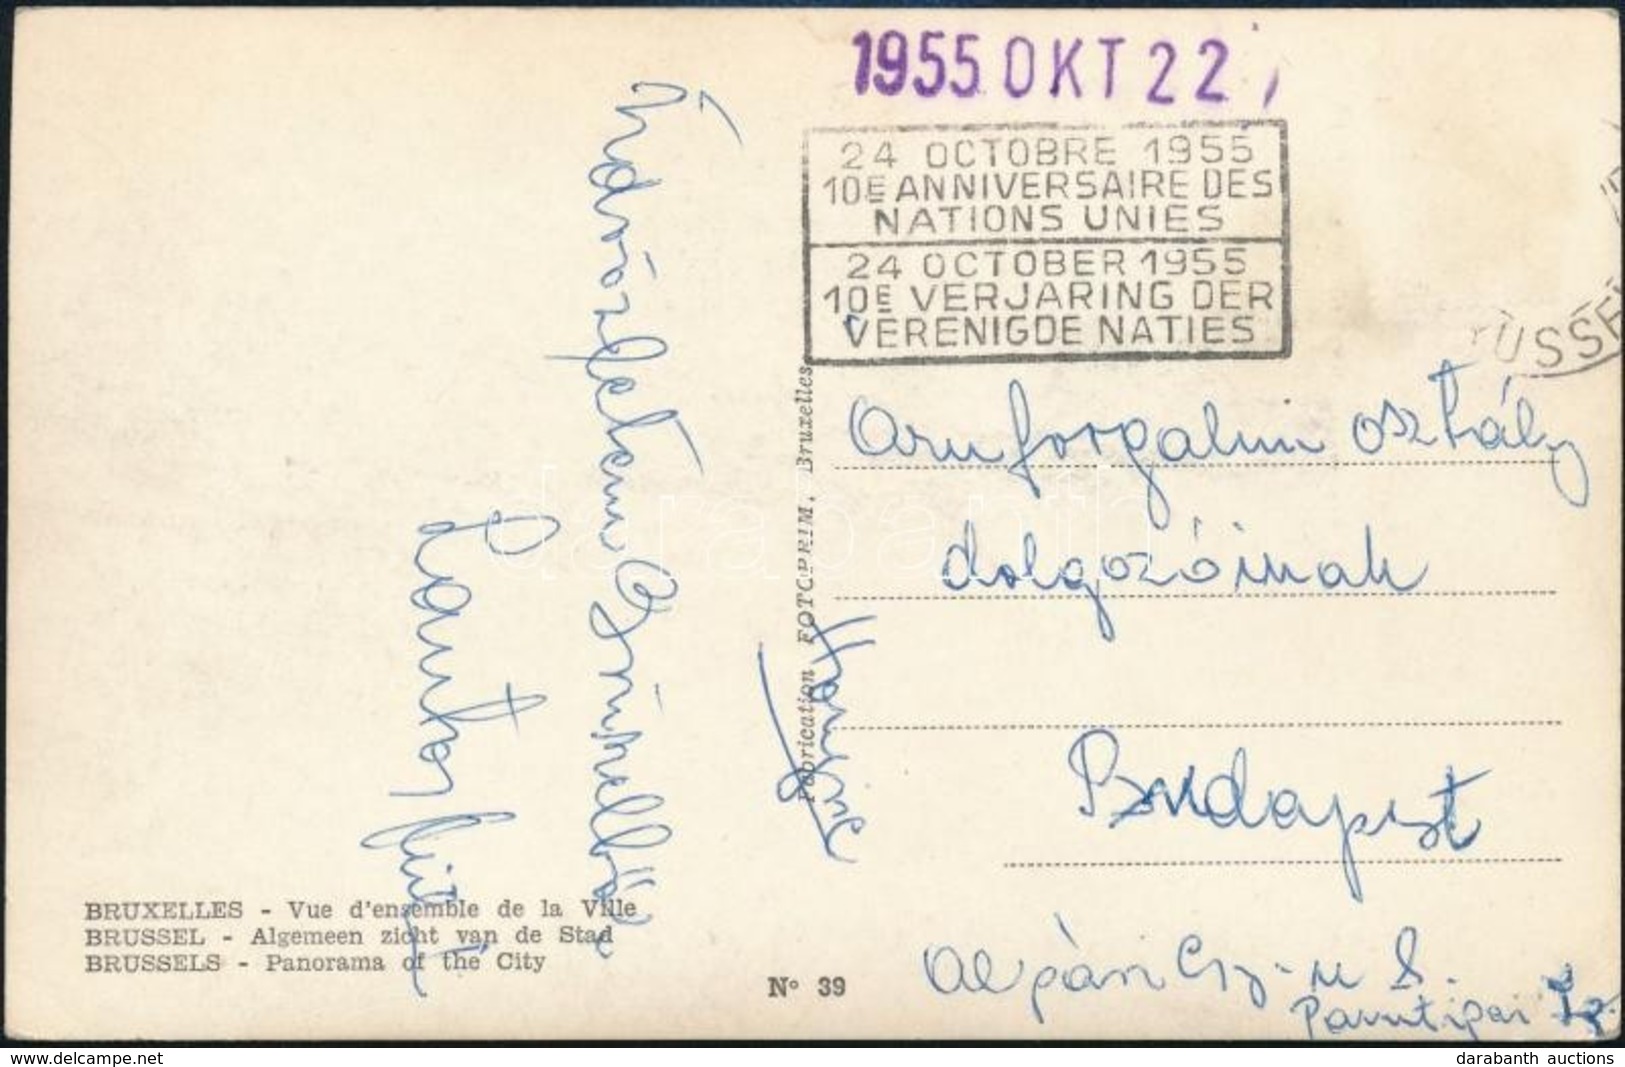 1955 OKT 22
24 OCTOBRE 1955
10E ANNIVERSAIRE DES
NATIONS UNIES
24 OCTOBER 1955
10E VERJARING DER
VERENIGDE NATIES
USSE
Üdvözletem Brüsselből
Fabrication FOTOPRIM. Bruxelles
Áruforgalmi osztály
dolgozóinak
Budapest
BRUXELLES - Vue d'ensemble de la Ville
BRUSSEL - Algemeen zicht van de Stad
BRUSSELS - Panorama of the City
N° 39
darabanth
darabanth auctions
www.delcampe.net